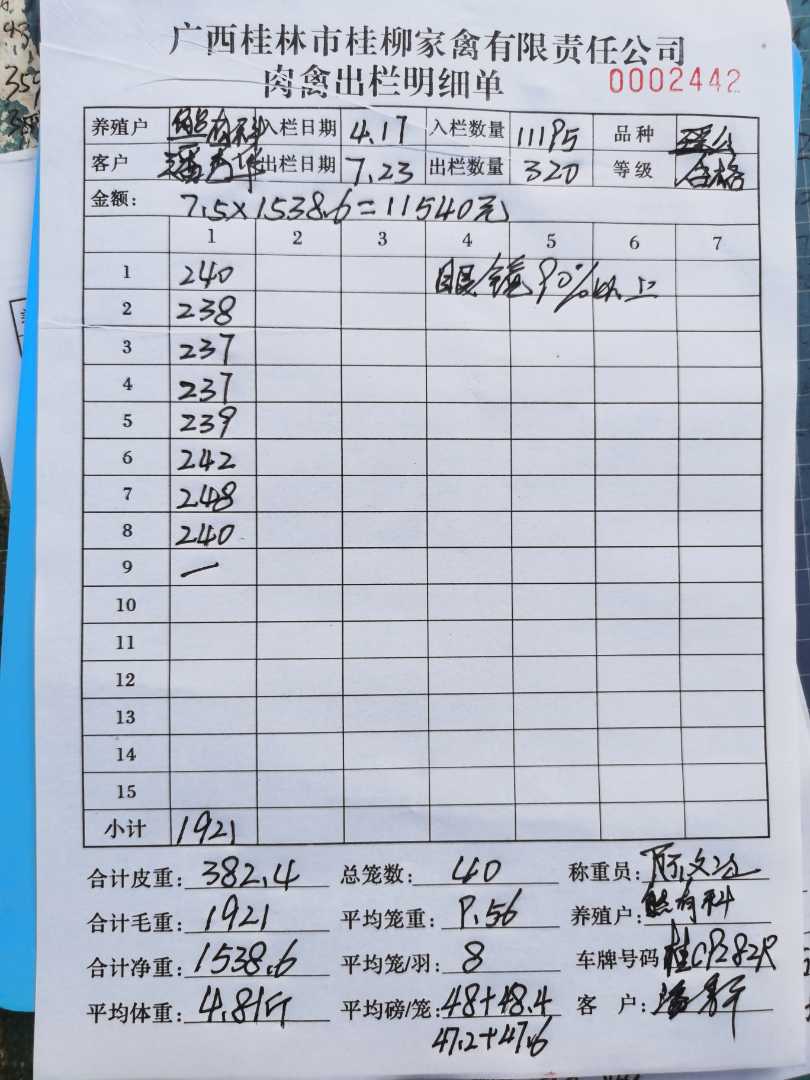 广西桂林市桂柳家禽有限责任公司
肉禽出栏明细单 0002442
养殖户 熊有科 入栏日期 4.17 入栏数量 11195 品种
客户 出栏日期 7.23 出栏数量 320 等级 合格
金额: 7.5×1538.6=11540元
1 2 3 4 5 6 7
1 240 眼镜90%以上
2 238
3 237
4 237
5 239
6 242
7 248
8 240
9 一
10
11
12
13
14
15
小计 1921
合计皮重: 382.4 总笼数: 40 称重员:
合计毛重: 1921 平均笼重: 9.56 养殖户: 熊有科
合计净重: 1538.6 平均笼/羽: 8 车牌号码
平均体重: 4.81斤 平均磅/笼: 48+48.4 客 户:
47.2+47.6